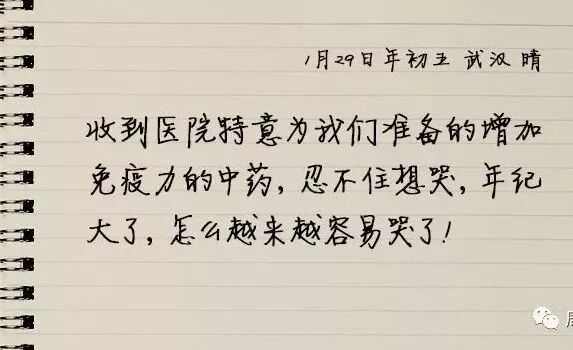 1月29日年初五 武汉 晴
收到医院特意为我们准备的增加
免疫力的中药，忍不住想哭，年纪
大了，怎么越来越容易哭了！